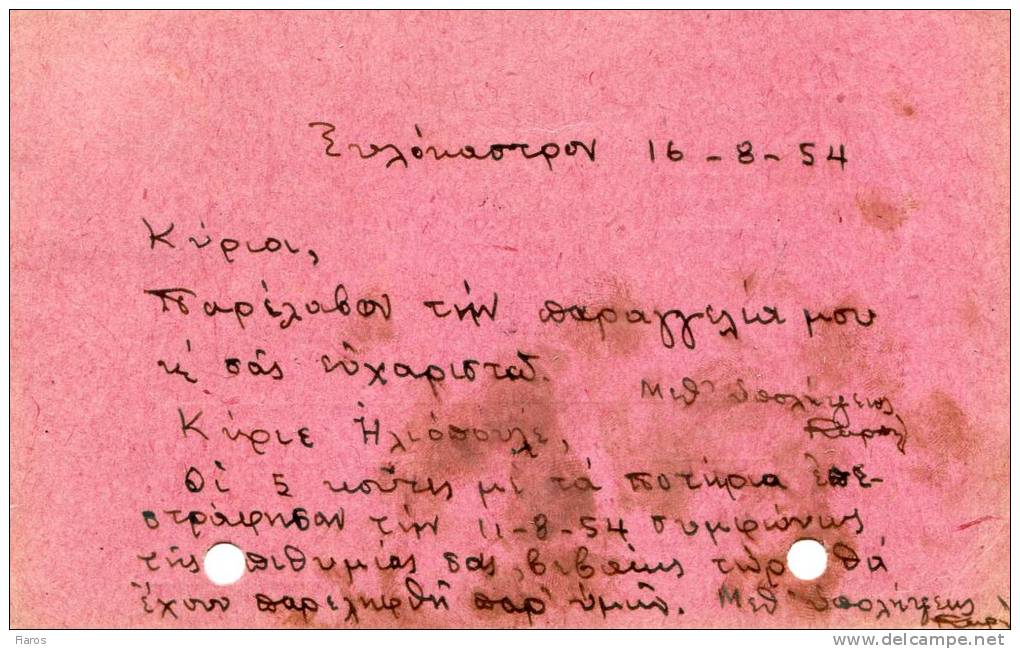 Ξυλόκαστρον 16-8-54
Κύριοι,
Παρέλαβον τὴν παραγγελία μου
κ' σᾶς εὐχαριστῶ.
Μεθ' ὑπολήψεως
Κύριε Ἠλιόπουλε,
Οἱ 5 κοῦτες μὲ τὰ ποτήρια ἐπε-
στράφησαν τὴν 11-8-54 συμφώνως
τῆς πιθυμίας σας, βεβαίως τώρ θὰ
ἔχουν παρεληφθῆ παρ' ὑμῶν. Μεθ' ὑπολήψεως
Itaros
delcampe.net